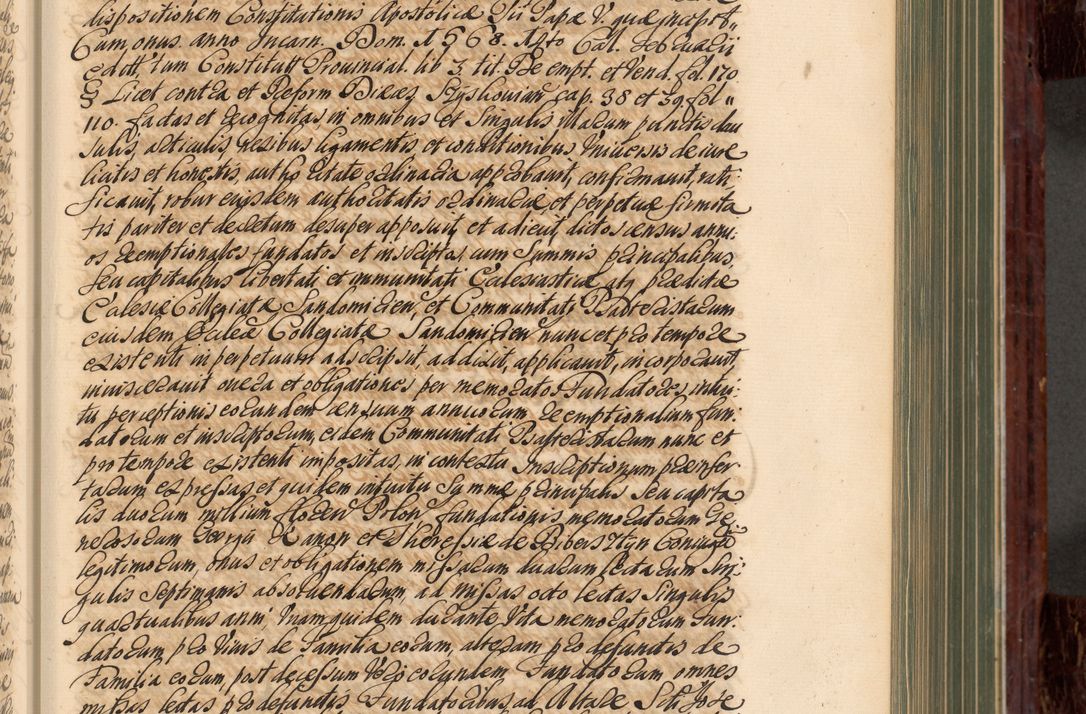 dispositionem Constitutionis Apostolicæ Pii Papæ V. quæ incipit
Cum onus. anno Incarn. Dom. 1568. 14to Cal. Februarii
edit, tum Constitutt Provincial. lib 3. tit. De empt. et Vend. fol. 170.
§ Licet contra et Reform cap. 38 et 39. fol
110. factas et recognitas in omnibus et Singulis illarum punctis clau
sulis, articulis, nexibus ligamentis et conditionibus Universis de iure
licitis et honestis, authoritate ordinaria approbavit, confirmavit rati
ficavit, robur eiusdem authoritatis ordinariæ, et perpetuæ firmita
tis pariter et decretum desuper apposuit, et adiecit, dictos census annu
os reemptionales fundatos et inscriptos, cum Summis principalibus
seu capitalibus libertati et immunitati Ecclesiasticæ, atq prædictæ
Ecclesiæ Collegiatæ Sandomirien, et Communitati Psalteristarum
eiusdem Ecclesiæ Collegiatæ Sandomirien nunc et pro tempore
existenti in perpetuum adscripsit, addixit, applicavit, incorporavit,
invisceravit onera et obligationes per memoratos Fundatores, intui
tu perceptionis eorundem censuum annuorum reemptionalium fun
datorum et inscriptorum, eidem Communitati Psalteristarum nunc et
pro tempore existenti impositas, in contextu Inscriptionum præinser
tarum expressas, et quidem intuitu Summæ principalis seu capita
lis duorum millium floren Polon, fundationis memoratorum Ge
nerosorum Georgii Kanon et Theressiæ de Conjugū
legitimorum, onus et obligationem missarum duarum lectarum Sin
gulis Septimanis absolvendarum, ad missas octo lectas Singulis
quartualibus anni unam quidem durante Vita memoratorum Fun
datorum, pro Vivis de Familia eorum, alteram pro defunctis de
Familia eorum, post decessum Vero eorundem Fundatorum, omnes
missas lectas pro defunctis Fundatoribus, ad Altare Scti Jose